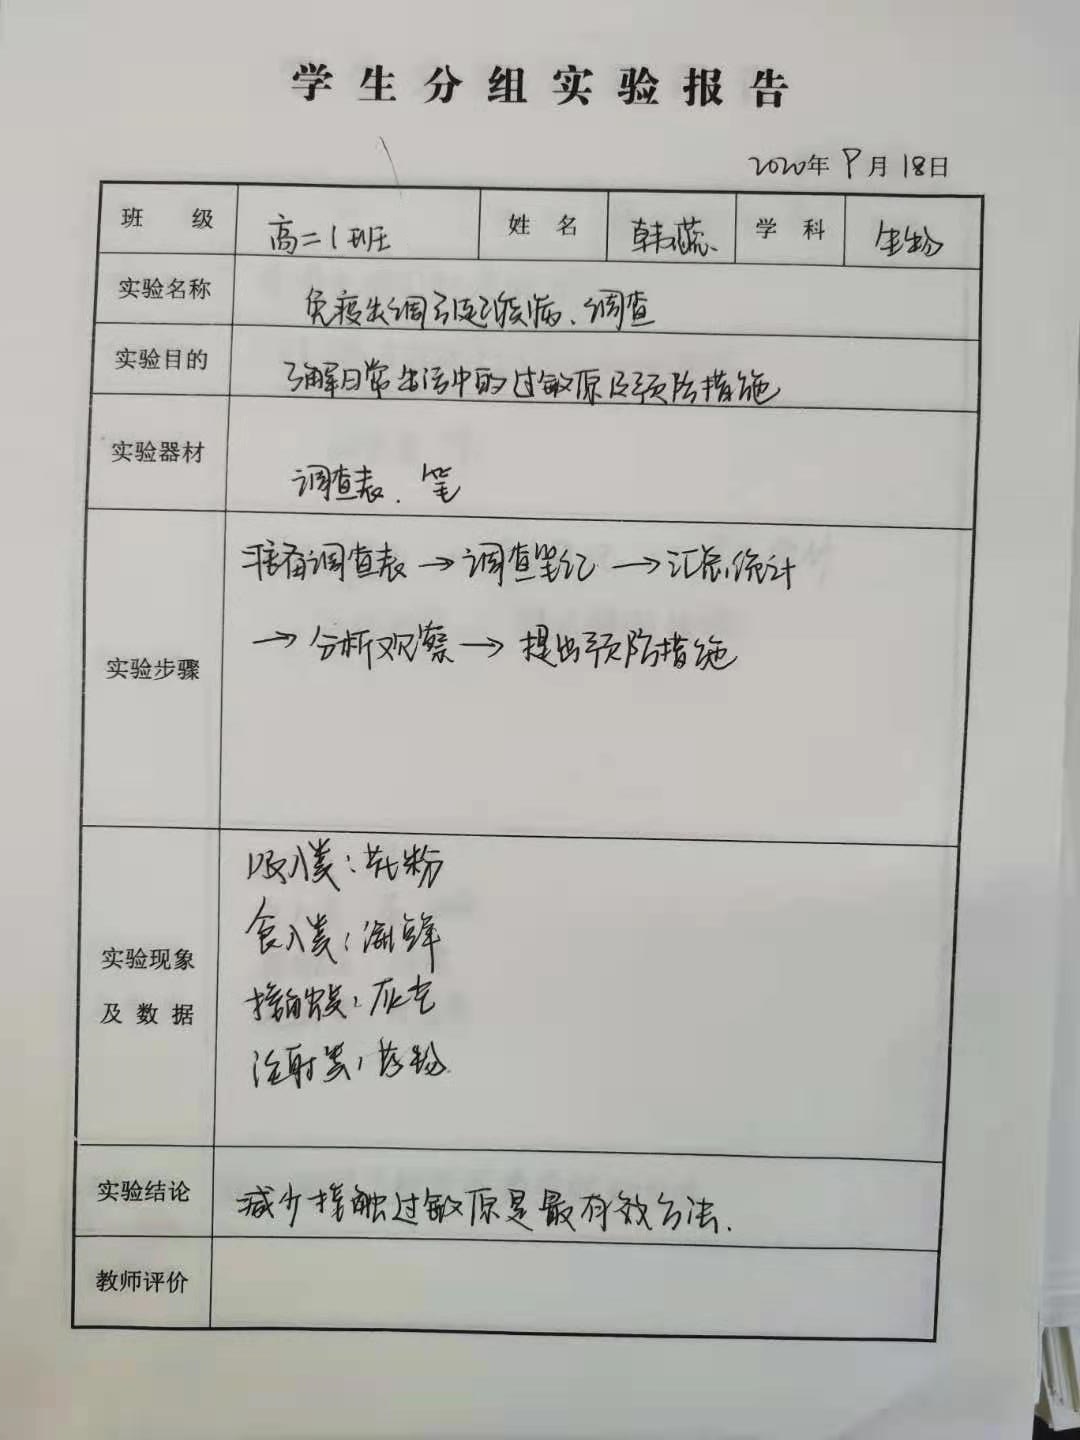 学生分组实验报告
2020年9月18日
班 级 高二1班 姓 名 韩蕊 学 科 生物
实验名称 免疫失调引起疾病、调查
实验目的 了解日常生活中的过敏原及预防措施
实验器材 调查表、笔
准备调查表→调查登记→汇总统计
→分析观察→提出预防措施
实验步骤
吸入类：花粉
食入类：海鲜
实验现象
接触类：灰尘
及 数 据
注射类：药物
实验结论 减少接触过敏原是最有效方法.
教师评价